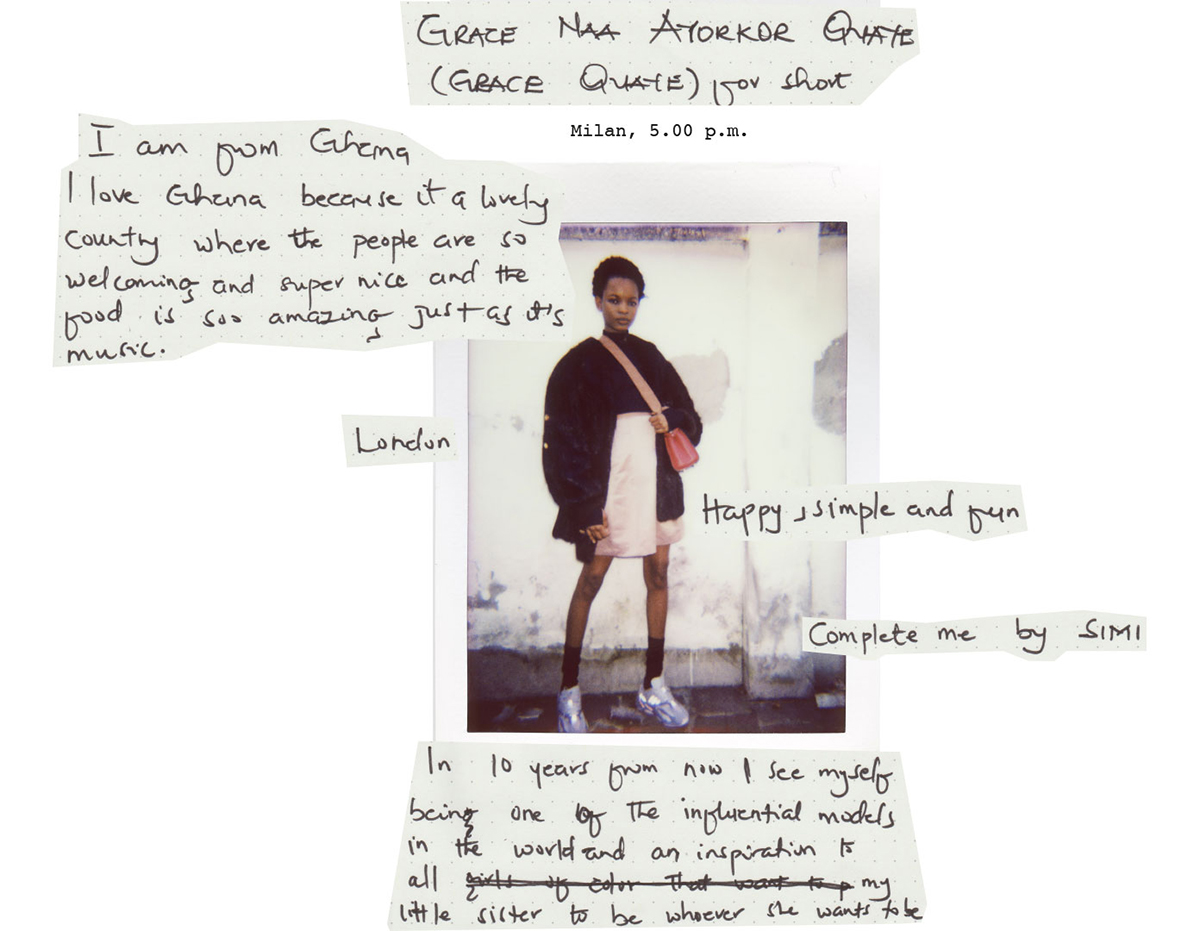 GRACE NAA AYORKOR QUAYE
(GRACE QUAYE) for short
Milan, 5.00 p.m.
I am from Ghana
I love Ghana because it a lovely
country where the people are so
welcoming and super nice and the
food is soo amazing just as it's
music.
London
Happy, simple and fun
Complete me by SIMI
In 10 years from now I see myself
being one of the influential models
in the world and an inspiration to
all girls of color that want to p my
little sister to be whoever she wants to be